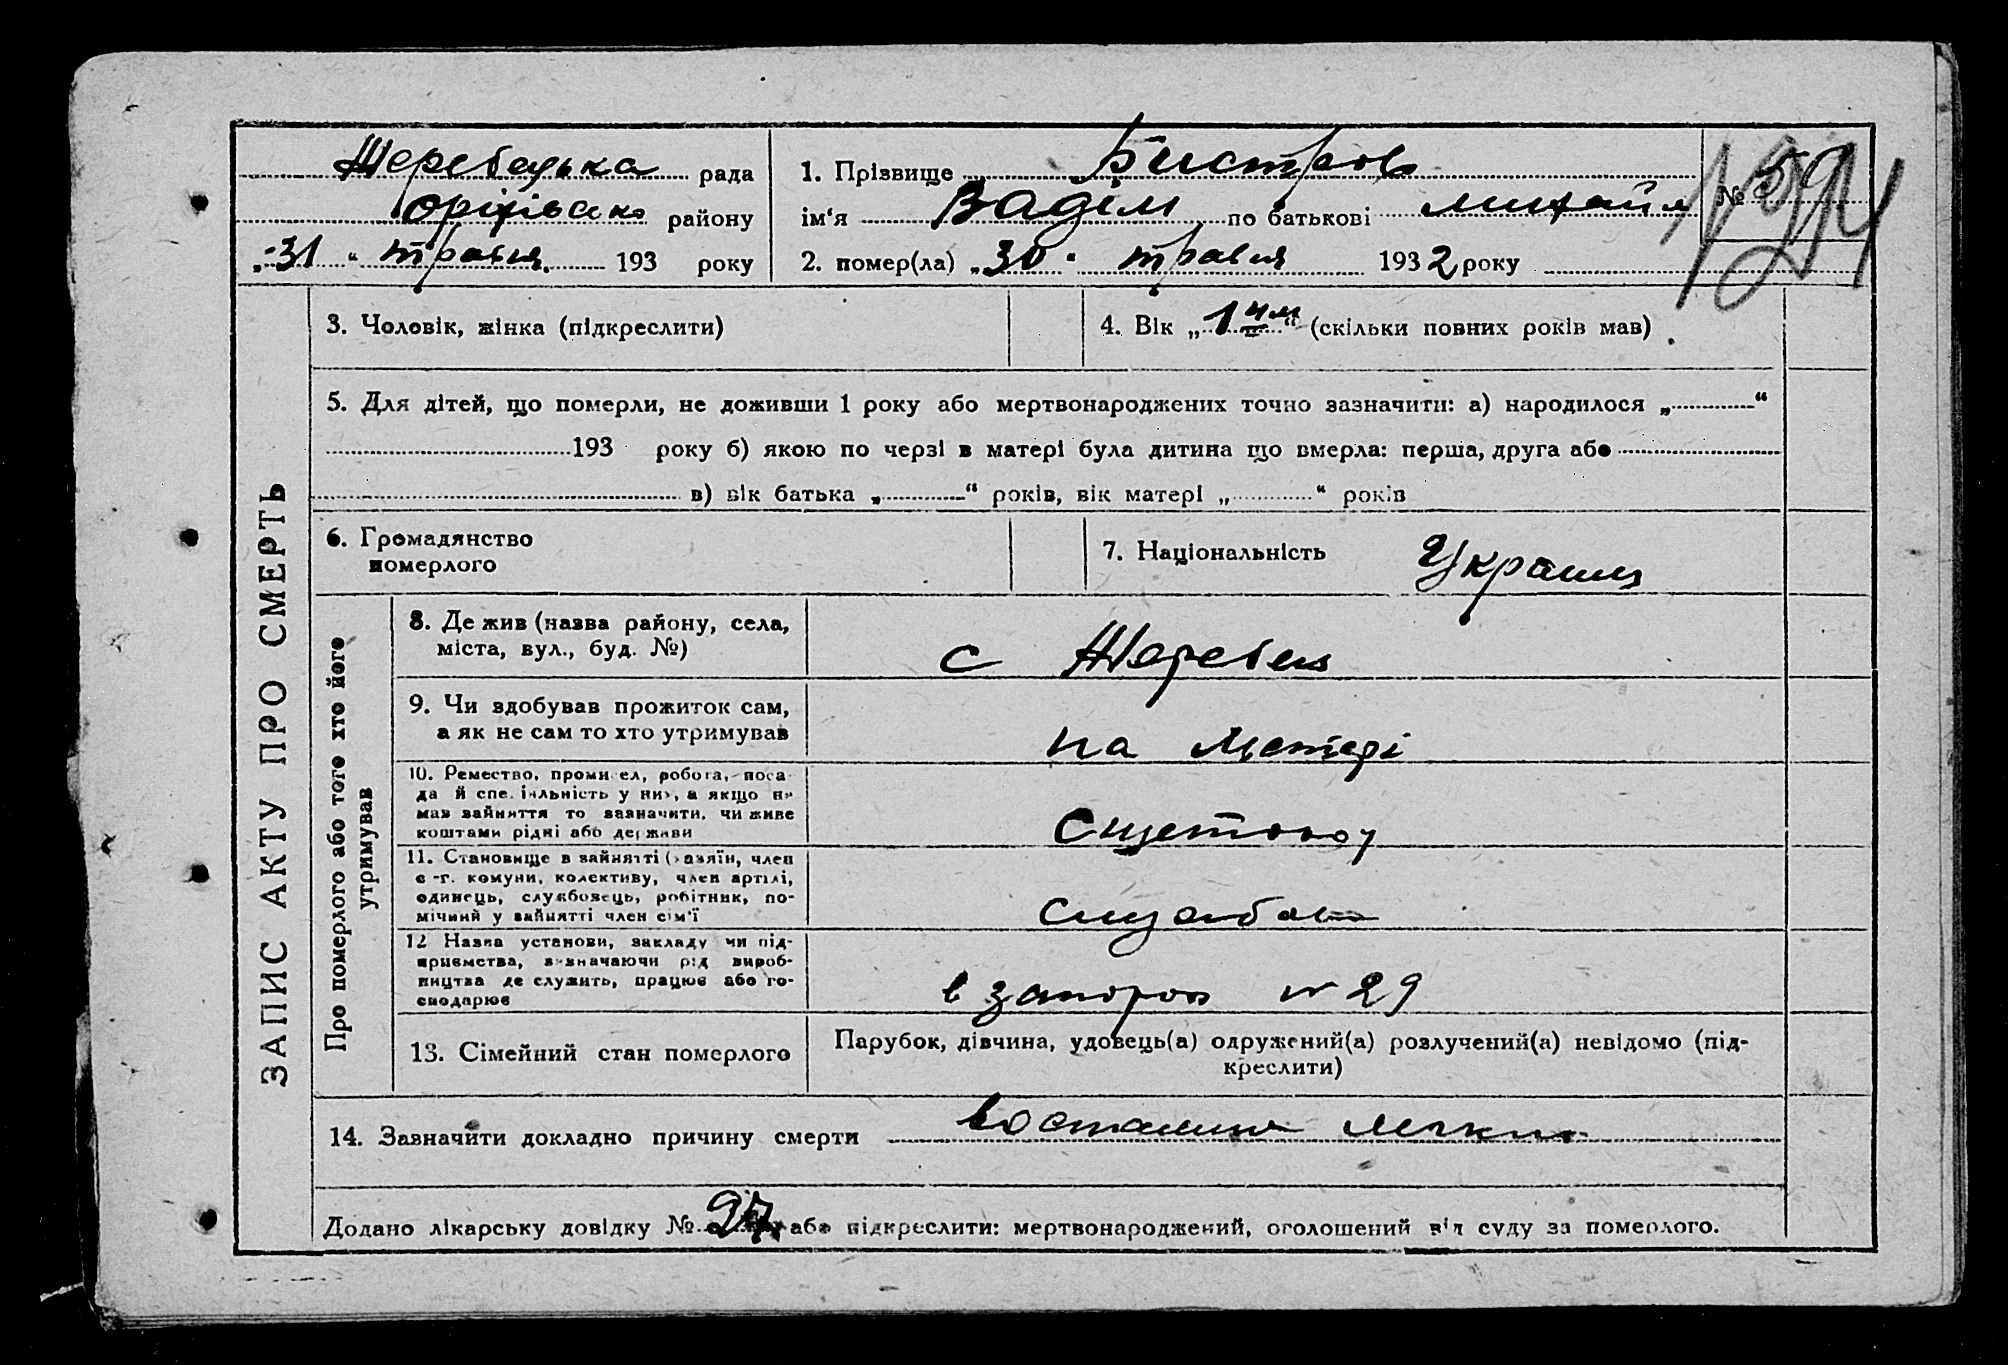 Жеребецька рада
Оріхівсько району
„31“ травня 193 року
1. Прізвище Бистров
ім'я Вадім по батькові Михайл
2. помер(ла) „30“ травня 1932 року
№ 59
3. Чоловік, жінка (підкреслити)
4. Вік „1 ч м“ (скільки повних років мав)
5. Для дітей, що померли, не доживши 1 року або мертвонароджених точно зазначити: а) народилося „ “
193 року б) якою по черзі в матері була дитина що вмерла: перша, друга або
в) вік батька „ “ років, вік матері „ “ років
6. Громадянство
померлого
7. Національність Украинц
ЗАПИС АКТУ ПРО СМЕРТЬ
Про померлого або того хто його
утримував
8. Де жив (назва району, села,
міста, вул., буд. №)
с Жеребец
9. Чи здобував прожиток сам,
а як не сам то хто утримував
на Матері
10. Ремество, промисел, робота, поса-
да й спеціяльність у них, а якщо не
мав зайняття то зазначити, чи живе
коштами рідні або держави
Сщетовоу
11. Становище в зайнятті (хазяїн, член
с-г. комуни, колективу, член артілі,
одинець, службовець, робітник, по-
мічний у зайнятті член сім'ї
службов
12 Назва установи, закладу чи під-
приємства, зазначаючи рід вироб-
ництва де служить, працює або го-
сподарює
в № 29
13. Сімейний стан померлого
Парубок, дівчина, удовець(а) одружений(а) розлучений(а) невідомо (під-
креслити)
14. Зазначити докладно причину смерти
Додано лікарську довідку № 97 або підкреслити: мертвонароджений, оголошений від суду за померлого.